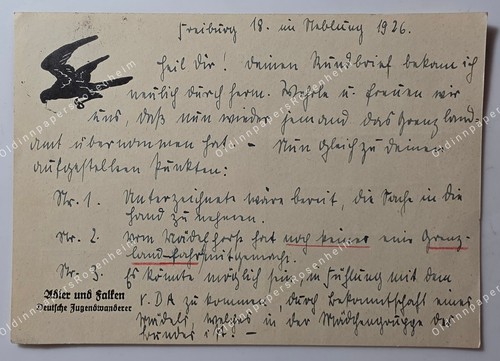 Freiburg 18. im Neblung 1926.
Heil Dir! Deinen Rundbrief bekam ich
neulich durch Herm. Wehrle u. freuen wir
uns, daß nun wieder jemand das Grenzland-
amt übernommen hat. – Nun gleich zu deinen
aufgestellten Punkten:
Nr. 1. Unterzeichnete wäre bereit, die Sache in die
Hand zu nehmen.
Nr. 2. Vom Mädelhorst hat noch keines eine Grenz-
landfahrt mitgemacht.
Nr. 3. Es könnte möglich sein, in Fühlung mit dem
V.D.A. zu kommen, durch Bekanntschaft eines
Mädels, welches in der Mädchengruppe des
Bundes ist. –
Adler und Falken
Deutsche Jugendwanderer
OldinnpapersRosenheim